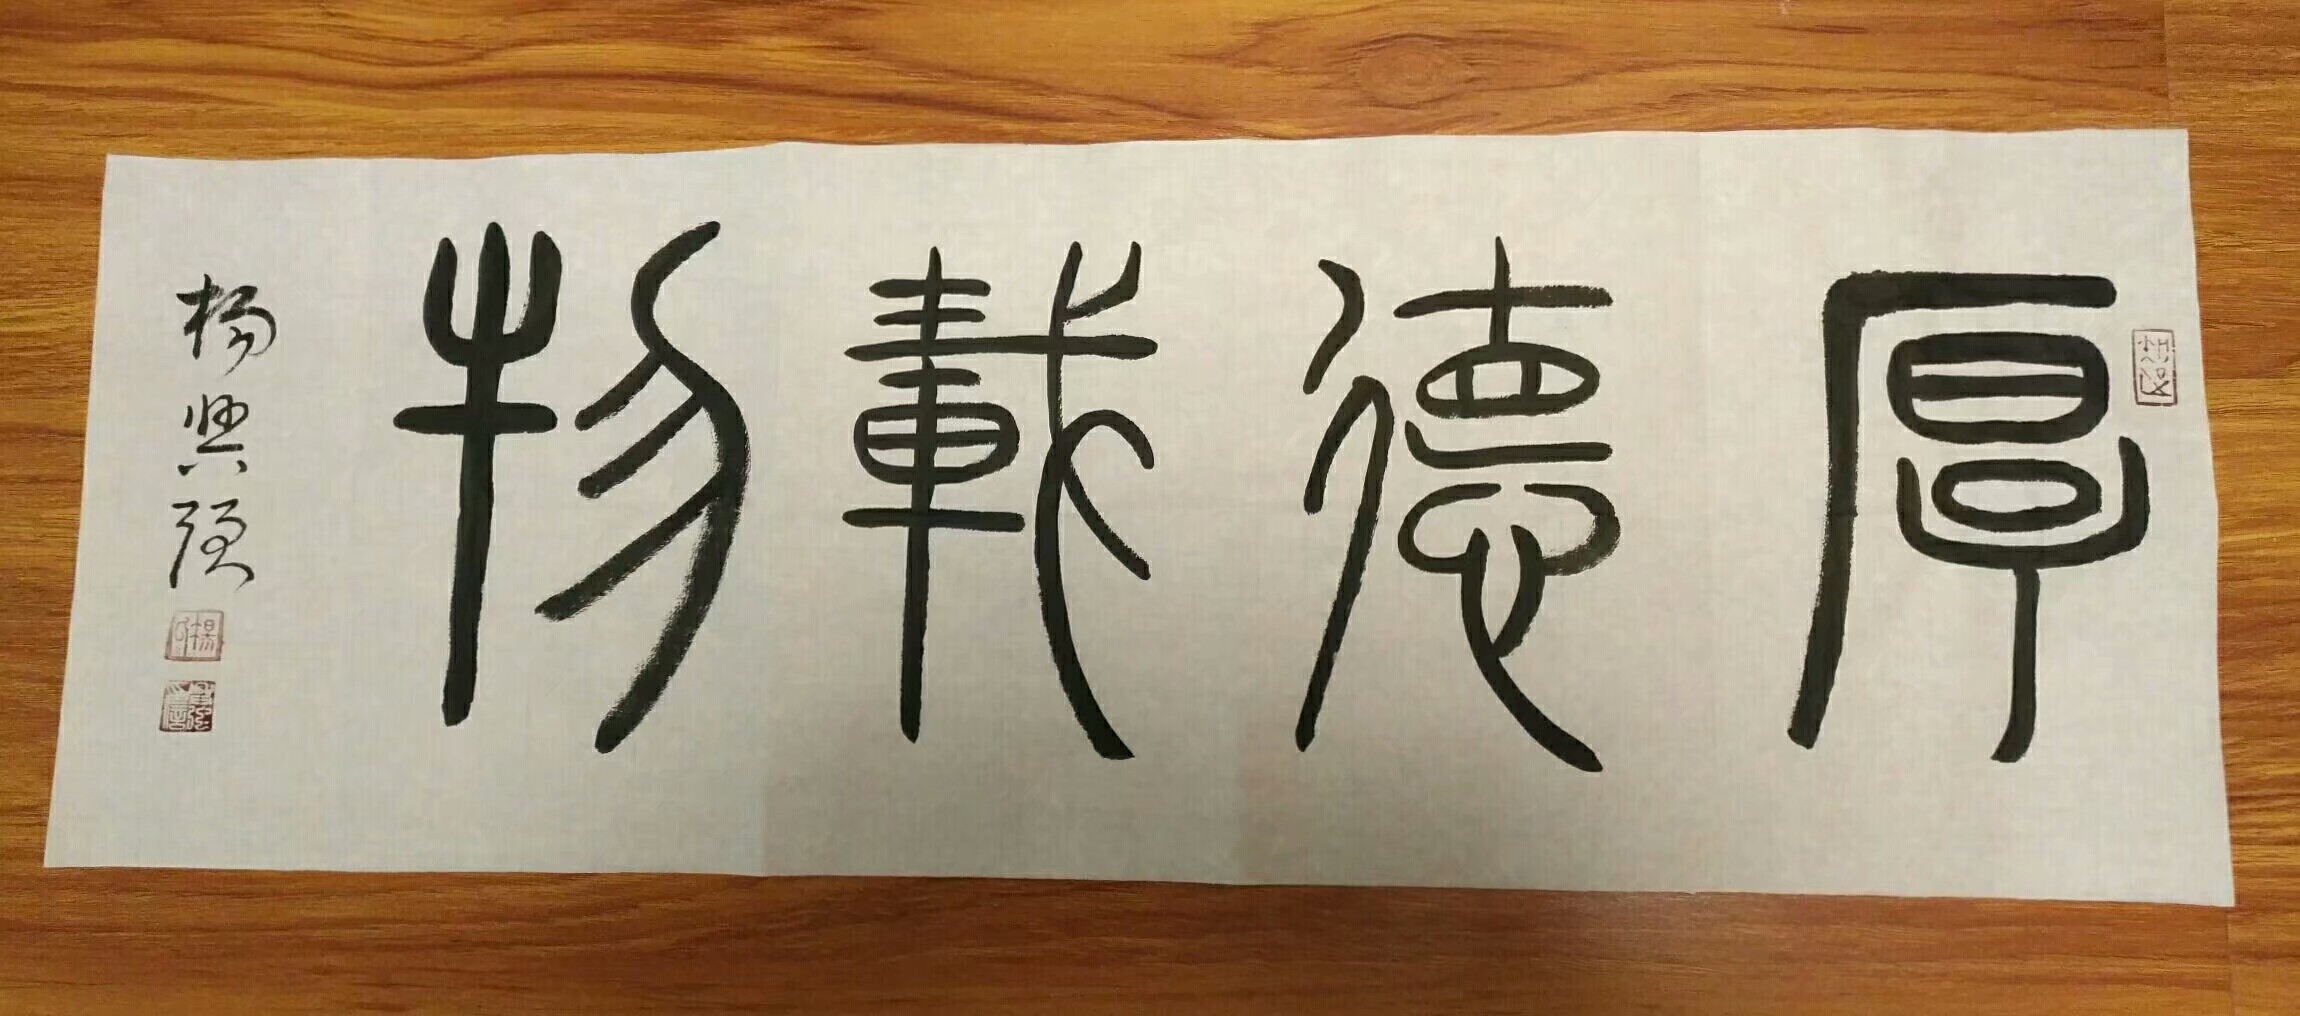 厚德載物
楊興顔